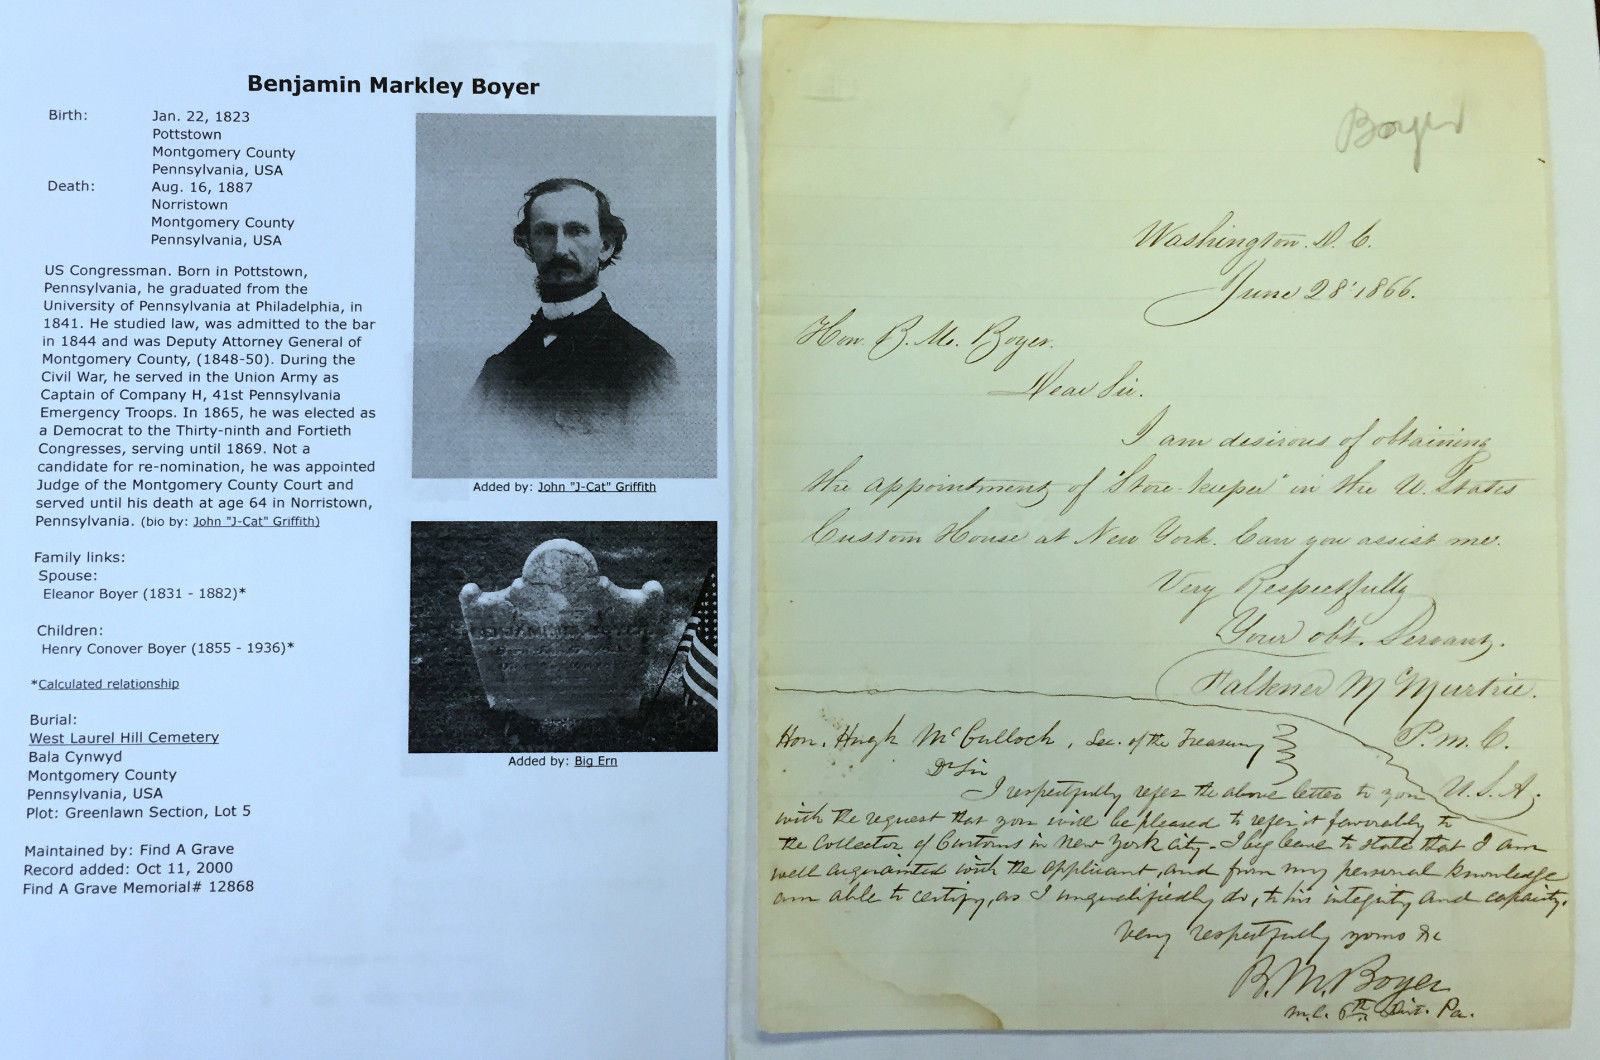 Benjamin Markley Boyer
Birth:
Jan. 22, 1823
Pottstown
Montgomery County
Pennsylvania, USA
Death:
Aug. 16, 1887
Norristown
Montgomery County
Pennsylvania, USA
US Congressman. Born in Pottstown,
Pennsylvania, he graduated from the
University of Pennsylvania at Philadelphia, in
1841. He studied law, was admitted to the bar
in 1844 and was Deputy Attorney General of
Montgomery County, (1848-50). During the
Civil War, he served in the Union Army as
Captain of Company H, 41st Pennsylvania
Emergency Troops. In 1865, he was elected as
a Democrat to the Thirty-ninth and Fortieth
Congresses, serving until 1869. Not a
candidate for re-nomination, he was appointed
Judge of the Montgomery County Court and
served until his death at age 64 in Norristown,
Pennsylvania. (bio by: John "J-Cat" Griffith)
Family links:
Spouse:
Eleanor Boyer (1831 - 1882)*
Children:
Henry Conover Boyer (1855 - 1936)*
*Calculated relationship
Burial:
West Laurel Hill Cemetery
Bala Cynwyd
Montgomery County
Pennsylvania, USA
Plot: Greenlawn Section, Lot 5
Maintained by: Find A Grave
Record added: Oct 11, 2000
Find A Grave Memorial# 12868
Added by: John "J-Cat" Griffith
Added by: Big Ern
Boyer
Washington. D. C.
June 28' 1866.
Hon. B. M. Boyer.
Dear Sir.
I am desirous of obtaining
the appointment of "Store-keeper" in the U. States
Custom House at New York. Can you assist me.
Very Respectfully
Your obt. Servant.
Falkner McMurtrie.
P. M. C.
U. S. A.
Hon. Hugh McCulloch, Sec. of the Treasury
Dr Sir
I respectfully refer the above letter to you
with the request that you will be pleased to refer it favorably to
the Collector of Customs in New York City - I beg leave to state that I am
well acquainted with the applicant, and from my personal knowledge
am able to certify, as I unqualifiedly do, to his integrity and capacity.
Very respectfully yours &c
B. M. Boyer
M. C. 6th Dist. Pa.